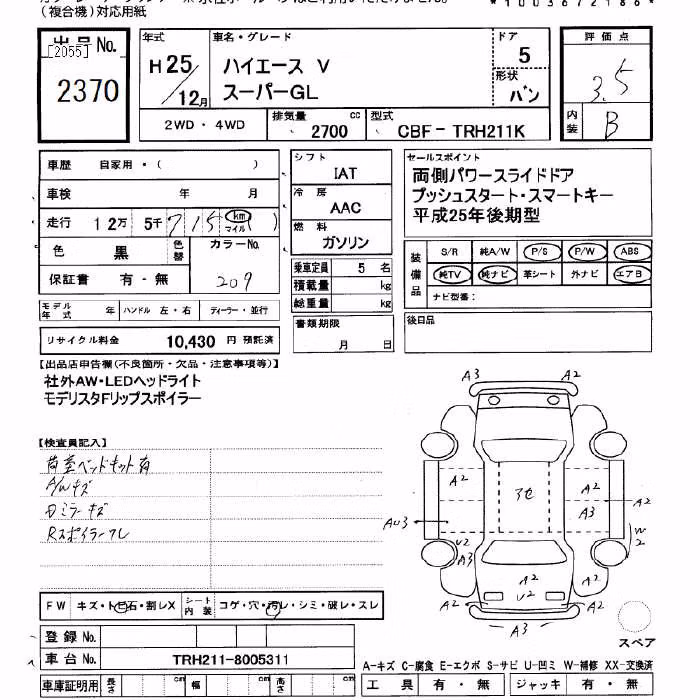 (複合機)対応用紙
*1003672186*
出品No.
[2055]
2370
年式
H25/12月
車名・グレード
ハイエース V
スーパーGL
ドア
5
形状
バン
評価点
3.5
内装
B
2WD・4WD
排気量 2700 cc
型式 CBF-TRH211K
車歴 自家用・( )
車検 年 月
走行 12万 5千 715 km マイル ( )
色 黒 色替 カラーNo. 209
保証書 有・無
シフト
IAT
冷房
AAC
燃料
ガソリン
乗車定員 5 名
積載量 kg
総重量 kg
セールスポイント
両側パワースライドドア
プッシュスタート・スマートキー
平成25年後期型
装備品
S/R 純A/W P/S P/W ABS
純TV 純ナビ 革シート 外ナビ エアB
ナビ型番:
モデル年式 年 ハンドル 左・右 ディーラー・並行
リサイクル料金 10,430 円 預託済
書類期限
月 日
後日品
【出品店申告欄(不良箇所・欠品・注意事項等)】
社外AW・LEDヘッドライト
モデリスタFリップスポイラー
【検査員記入】
荷室ベッドキット有
A/Wキズ
Dミラーキズ
Rスポイラーワレ
A3 A2
A2 アセ A2 A2
A3
AU3 U2 W2
A3 A2 A2
A2 U2 A2
A3
FW キズ・トビ石・割レX
シート内装 コゲ・穴・汚レ・シミ・破レ・スレ
スペア
登録No.
車台No. TRH211-8005311
車庫証明用 長さ cm 幅 cm 高さ cm
A-キズ C-腐食 E-エクボ S-サビ U-凹ミ W-補修 XX-交換済
工具 有・無 ジャッキ 有・無